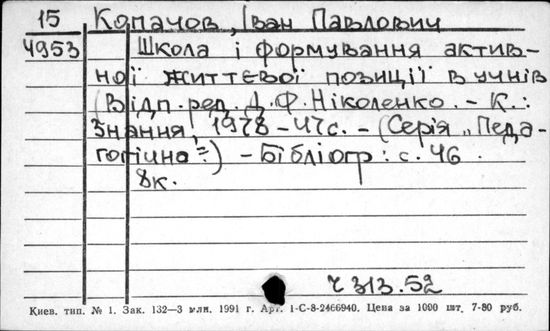 15 Копачов, Іван Павлович
4953 Школа і формування актив-
ної життєвої позиції в учнів
(Відп. ред. Д.Ф. Ніколенко. – К.:
Знання, 1978 – 47с. – (Серія „Педа-
гогічна“) – Бібліогр: с. 46.
8к.
Ч 313.52
Киев. тип. № 1. Зак. 132—3 млн. 1991 г. Арт. 1-С-8-2466940. Цена за 1000 шт. 7-80 руб.